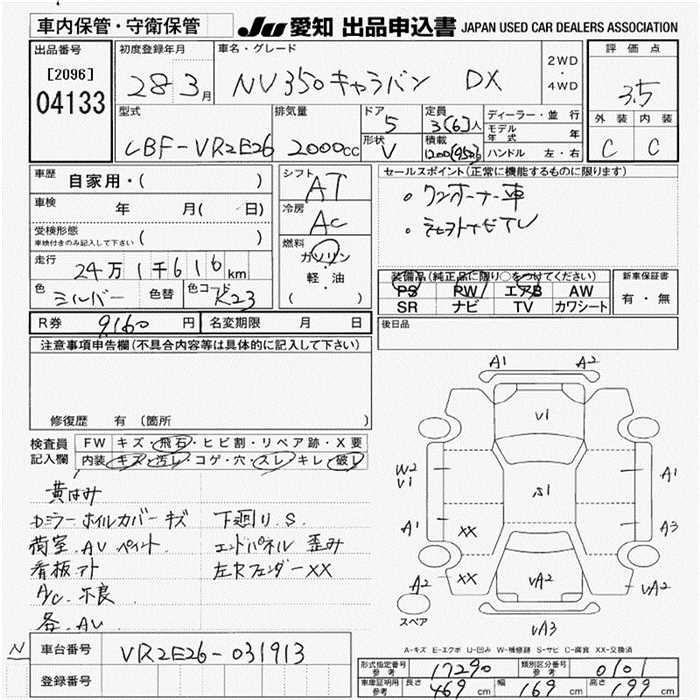 車内保管・守衛保管 JU 愛知 出品申込書 JAPAN USED CAR DEALERS ASSOCIATION
出品番号 初度登録年月 車名・グレード 評価点
[2096] 28 3月 NV350キャラバン DX 2WD・4WD 3.5
04133 型式 排気量 ドア 定員 ディーラー・並行 外装 内装
LBF-VR2E26 2000cc 5 3(6)人 モデル年式 年 C C
形状 積載 ハンドル 左・右
V 1200(950)
車歴 自家用・( ) シフト AT セールスポイント(正常に機能するものに限ります)
車検 年 月( 日) 冷房 AC ・ワンオーナー車
受検形態 ( )
車検付きのみ記入して下さい
燃料 ガソリン 軽・油 ( )
走行 24万1千616km
色 シルバー 色替 色コード K23
装備品(純正品に限り○をつけてください) 新車保証書
PS PW エアB AW 有・無
SR ナビ TV カワシート
R券 9160円 名変期限 月 日 後日品
注意事項申告欄(不具合内容等は具体的に記入して下さい)
修復歴 有 (箇所
検査員記入欄 FW キズ・飛石・ヒビ割・リペア跡・X要
内装 キズ・汚レ・コゲ・穴・スレ・キレ・破レ
黄ばみ
Dミラー ホイルカバー キズ 下廻り.S.
荷室.AV ペイント. エンドパネル 歪み
看板アト 左Rフェンダー XX
A/C 不良
各.AV
A1 A2
V1
W2 V1 S1 A1
A1 XX A3
A2 XX VA2 VA2
スペア VA3
A-キズ E-エクボ U-凹み W-補修跡 S-サビ C-腐食 XX-交換済
N 車台番号 VR2E26-031913
登録番号
形式指定番号 参考 17290 類別区分番号 参考 0101
車庫証明用 参考 長さ 469cm 幅 169cm 高さ 199cm